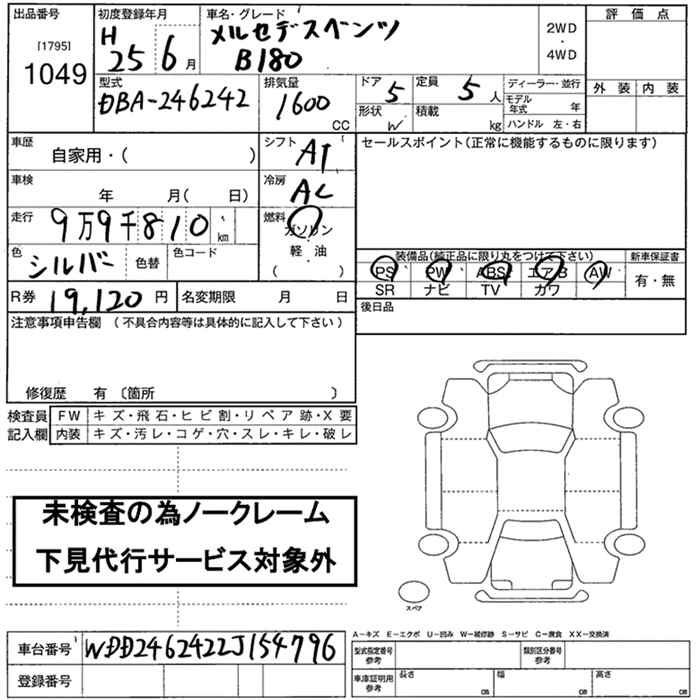 出品番号 [1795] 1049
初度登録年月 H 25 6 月
車名・グレード メルセデスベンツ B180
2WD ・ 4WD
評価点
外装 内装
型式 DBA-246242
排気量 1600 CC
ドア 5
形状 W
定員 5 人
積載 kg
ディーラー・並行
モデル年式 年
ハンドル 左・右
車歴 自家用・( )
シフト AT
セールスポイント(正常に機能するものに限ります)
車検 年 月( 日)
冷房 AC
走行 9万9千810 km
燃料 ガソリン 軽・油 ( )
色 シルバー 色替 色コード
装備品(純正品に限り丸をつけて下さい)
新車保証書
PS PW ABS エアB AW
SR ナビ TV カワ
有・無
R券 19,120 円 名変期限 月 日
後日品
注意事項申告欄 (不具合内容等は具体的に記入して下さい)
修復歴 有 〔箇所 〕
検査員記入欄
FW キズ・飛石・ヒビ割・リペア跡・X要
内装 キズ・汚レ・コゲ・穴・スレ・キレ・破レ
未検査の為ノークレーム
下見代行サービス対象外
スペア
A-キズ E-エクボ U-凹み W-補修跡 S-サビ C-腐食 XX-交換済
車台番号 WDD2462422J154796
型式指定番号 参考 類別区分番号 参考
登録番号
車庫証明用 参考 長さ cm 幅 cm 高さ cm